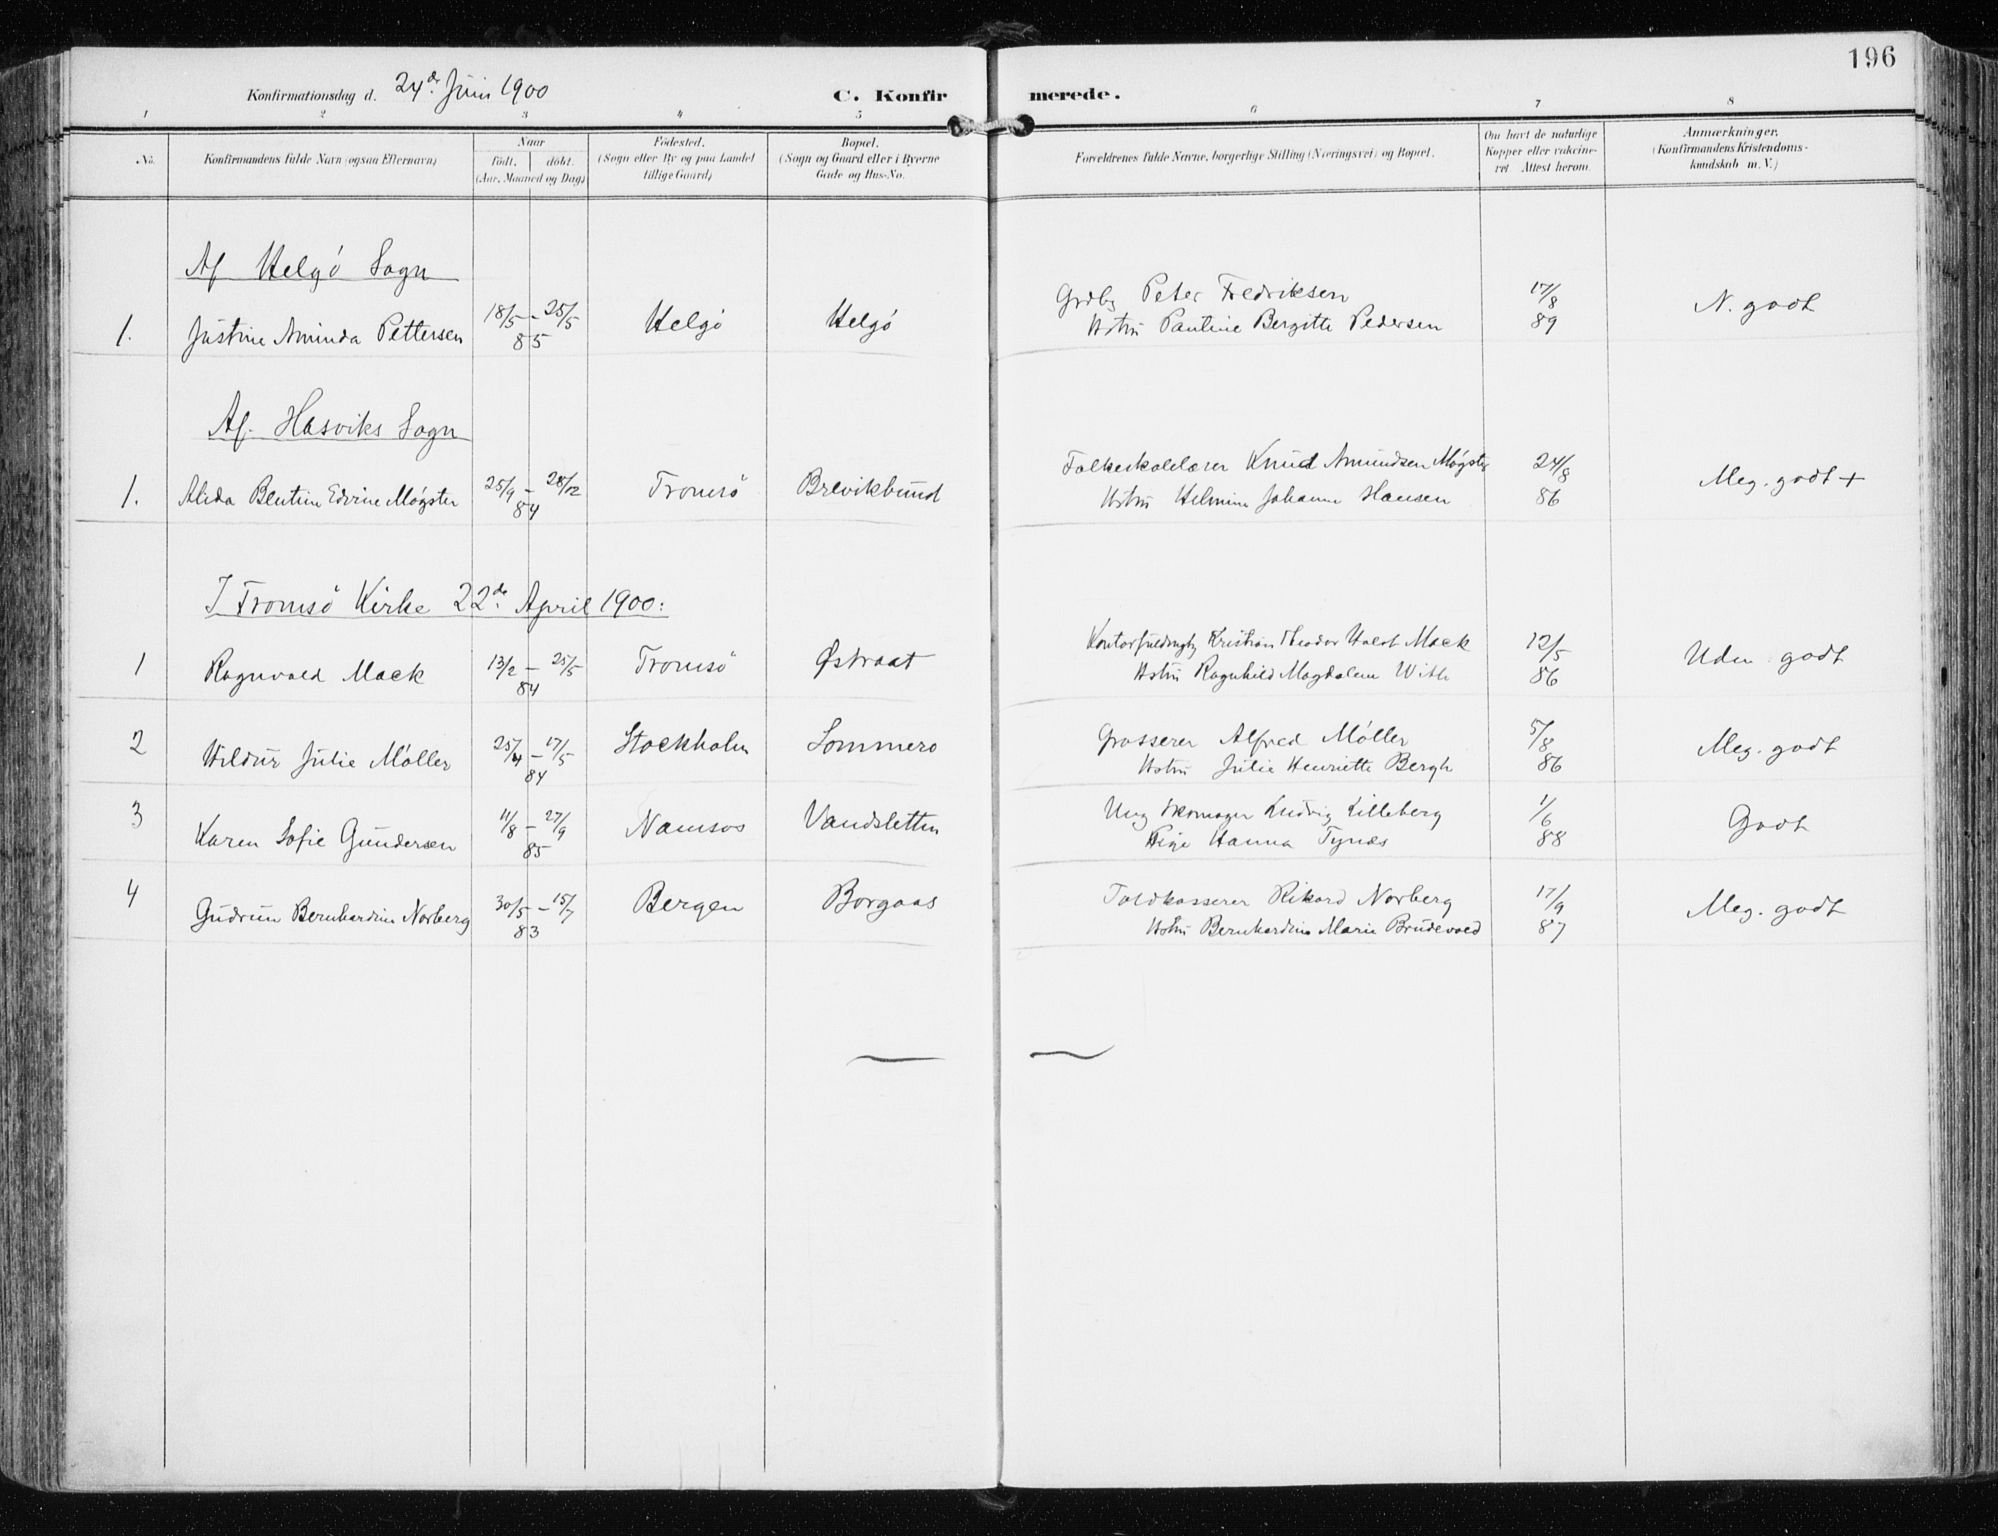 196
Konfirmationsdag d. 24de Juni 1900
C. Konfirmerede.
1 2 3 4 5 6 7 8
No. Konfirmandens fulde Navn (ogsaa Efternavn) Naar født. døbt. (Aar, Maaned og Dag) Fødested. (Sogn eller By og paa Landet tillige Gaard) Bopæl. (Sogn og Gaard eller i Byerne Gade og Hus-No. Forældrenes fulde Navne, borgerlige Stilling (Næringsvei) og Bopæl. Om havt de naturlige Kopper eller vakcineret. Attest herom. Anmærkninger. (Konfirmandens Kristendomskundskab m. V.)
Af Helgö Sogn
1. Justine Aminda Pettersen 18/5 - 25/5 85 Helgö Helgö Grdbr Peter Fredriksen 17/8 89 N. godt
Hstru Pauline Bergitte Pedersen
Af Hasviks Sogn
1. Alida Bentine Edvine Møgster 25/9 - 28/12 84 Tromsö Brevikbund Folkeskolelærer Knud Amundsen Møgster 24/8 86 Meg. godt +
Hstru Helmine Johanne Hansen
I Tromsö Kirke 22de April 1900:
1 Ragnvald Mack 13/2 - 25/5 84 Tromsö Østraat Kontorfuldmgtg Kristian Theodor Holst Mack 12/5 86 Udm. godt
Hstru Ragnhild Magdalene With
2 Hildur Julie Møller 25/4 - 17/5 84 Stockholm Sommero Grosserer Alfred Møller 5/8 86 Meg. godt
Hstru Julie Henriette Bergh
3 Karen Sofie Gundersen 11/8 - 27/9 85 Namsos Vandsletten Ung Skomager Ludvig Lilleberg 1/6 88 Godt
Pige Hanna Tynæs
4 Gudrun Bernhardine Norberg 30/5 - 15/7 83 Bergen Borgaas Toldkasserer Rikard Norberg 17/9 87 Meg. godt
Hstru Bernhardine Marie Brudevold